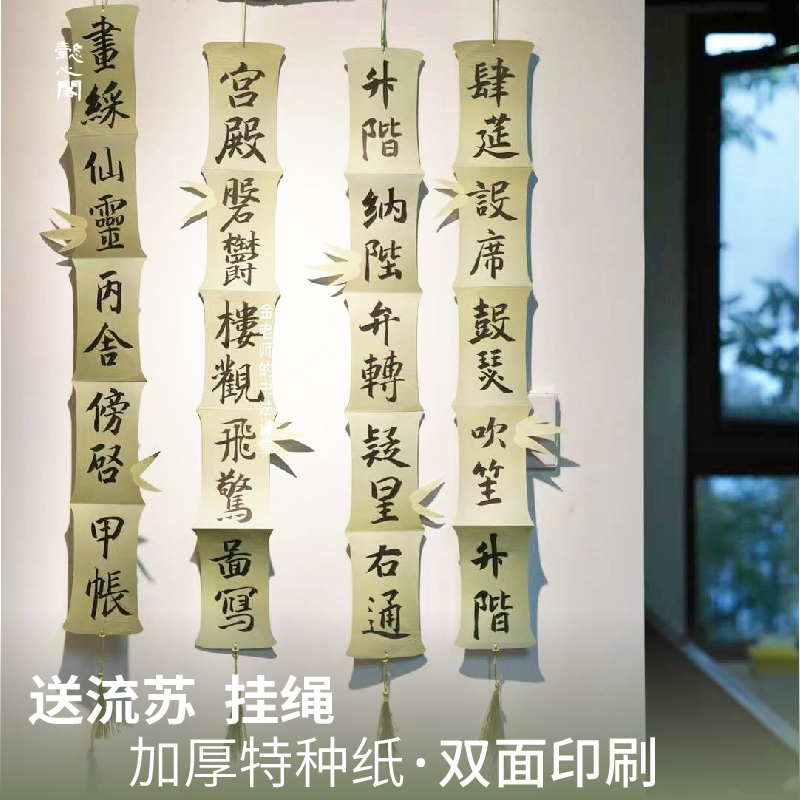 懿心閣
肆筵設席鼓瑟吹笙升階
升階納陛弁轉疑星右通
宮殿磐鬱樓觀飛驚啚寫
畫綵仙靈丙舍傍啓甲帳
金老师的书法
送流苏 挂绳
加厚特种纸·双面印刷